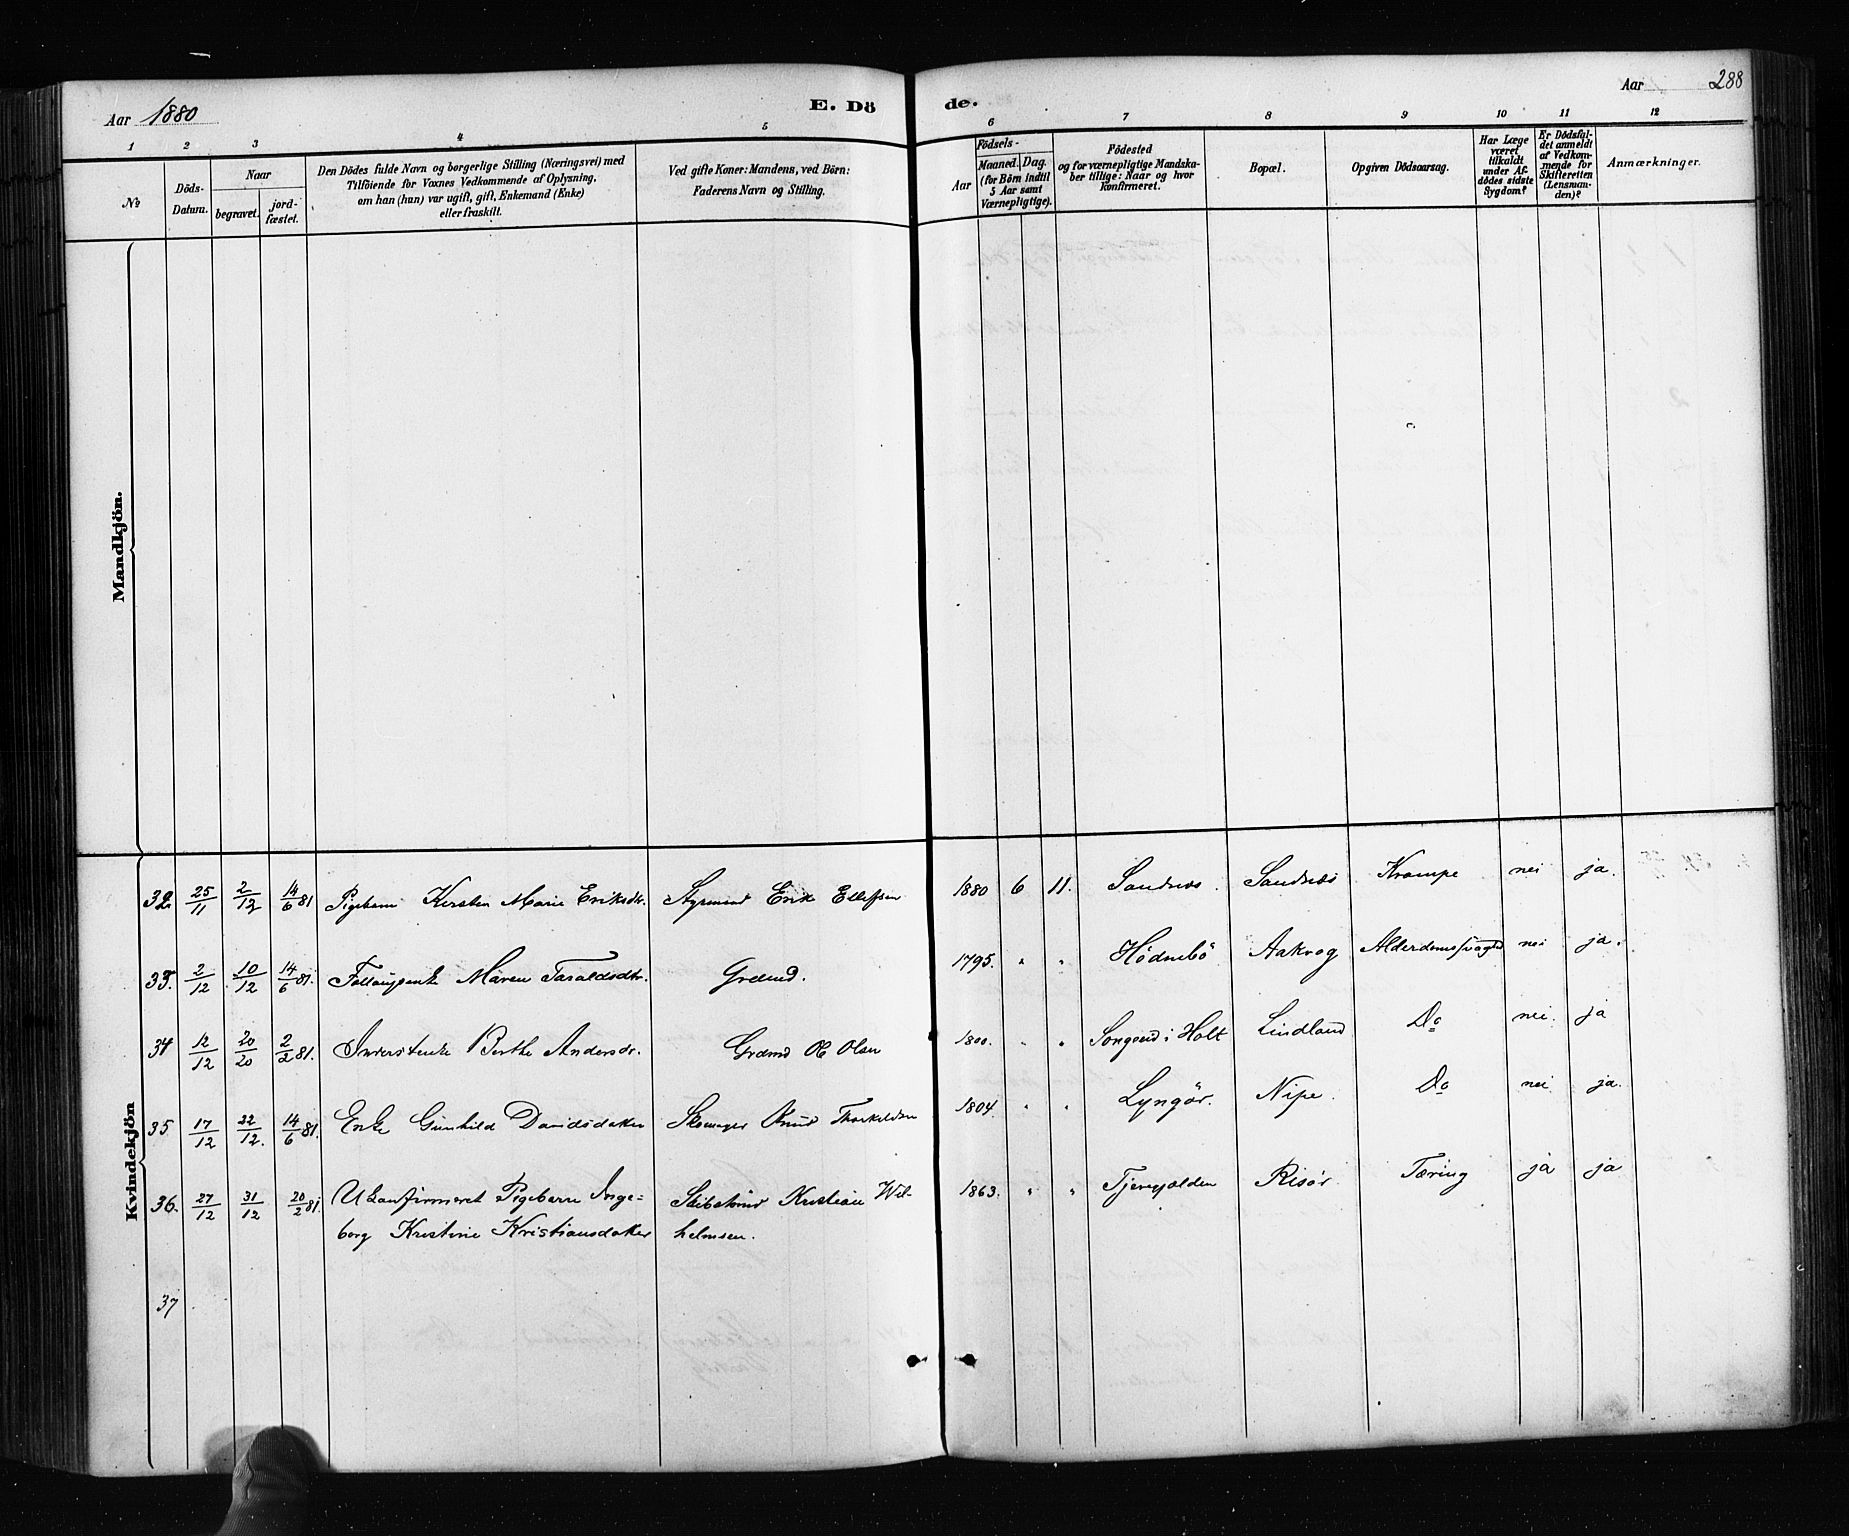 Aar 1880
E. Dö
de.
Aar 288
1 2 3 4 5 6 7 8 9 10 11 12
No
Döds-
Datum.
Naar
begravet.
jord-
fæstet.
Den Dödes fulde Navn og borgerlige Stilling (Næringsvei) med
Tilföiende for Voxnes Vedkommende af Oplysning,
om han (hun) var ugift, gift, Enkemand (Enke)
eller fraskilt.
Ved gifte Koner: Mandens, ved Börn:
Faderens Navn og Stilling.
Födsels-
Aar
Maaned. Dag.
(for Börn indtil
5 Aar samt
Værnepligtige).
Födested
og for værnepligtige Mandska-
ber tillige: Naar og hvor
Konfirmeret.
Bopæl.
Opgiven Dödsaarsag.
Har Læge
været
tilkaldt
under Af-
dödes sidste
Sygdom?
Er Dödsfal-
det anmeldt
af Vedkom-
mende for
Skifteretten
(Lensman-
den)?
Anmærkninger.
Mandkjön.
Kvindekjön
32. 25/11 2/12 14/6 81 Pigebarn Kirsten Marie Eriksdtr. Styrmand Erik Ellefsen 1880 6 11. Sandnæs. Sandnæs Krampe nei ja.
33. 2/12 10/12 14/6 81. Maren Taraldsdtr. Grdmd. 1795. " " Hödnebö Aakvog Alderdomssvaghed nei ja.
34 12/12 20/20 2/2 81. Berthe Andersdr. Grdmd Ole Olsen 1800. " " Songend i Holt Lindland Do nei. ja
35 17/12 22/12. 14/6 81. Enke Gunhild Davidsdatter Skomager Knud Thorkildsen 1804. " " Lyngör. Nipe. Do nei ja.
36. 27/12 31/12 20/2 81. Ukonfirmeret Pigebarn Inge= Skibstömd Kristian Wil- 1863. " " Tjernfjolden Risör. Tæring ja ja
borg Kristine Kristiansdatter helmsen.
37